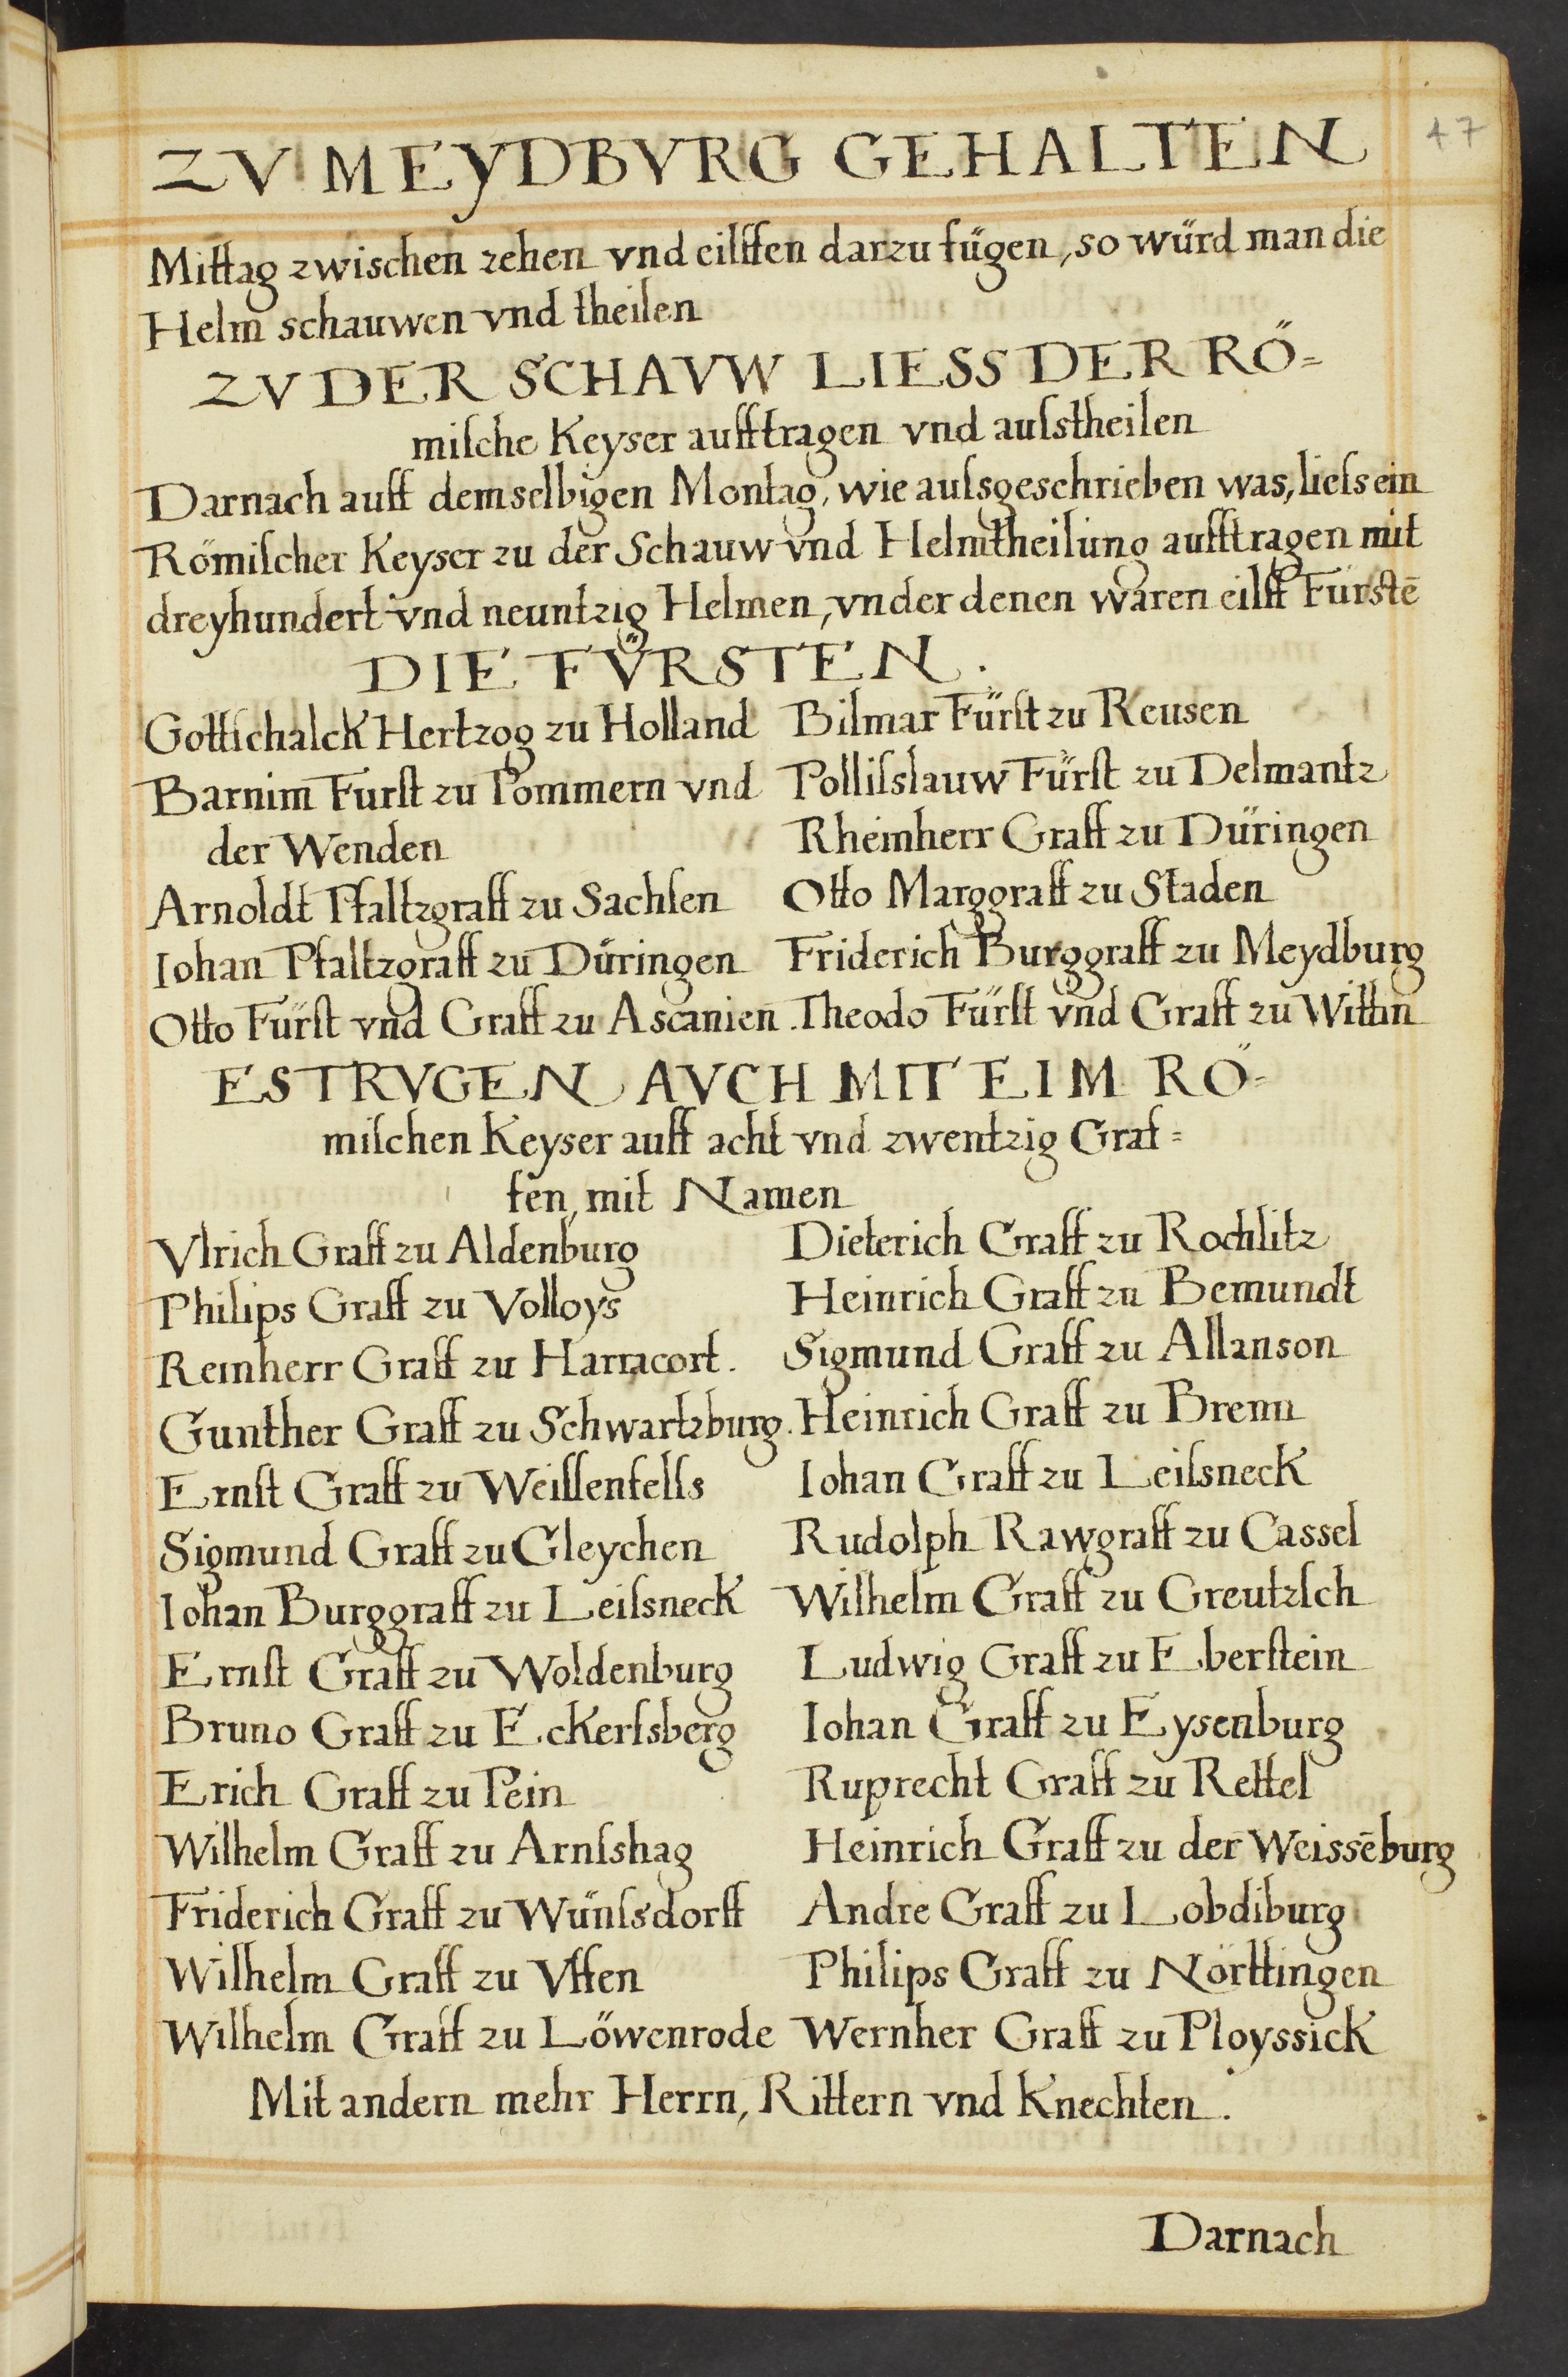 47
ZV MEYDBVRG GEHALTEN
Mittag zwischen zehen vnd eilffen darzu fügen, so würd man die
Helm schauwen vnd theilen
ZV DER SCHAVW LIESS DER RÖ=
miſche Keyser aufftragen vnd auſstheilen
Darnach auff demselbigen Montag, wie auſsgeschrieben was, lieſs ein
Römiſcher Keyser zu der Schauw vnd Helmtheilung aufftragen mit
dreyhundert vnd neuntzig Helmen, vnder denen waren eilff Fürstē
DIE FV̈RSTEN.
Gottſchalck Hertzog zu Holland
Barnim Furſt zu Pommern vnd
der Wenden
Arnoldt Pfaltzgraff zu Sachſen
Iohan Pfaltzgraff zu Düringen
Otto Fürſt vnd Graff zu Ascanien.
Bilmar Fürſt zu Reusen
Polliſslauw Fürſt zu Delmantz
Rheinherr Graff zu Düringen
Otto Marggraff zu Staden
Friderich Burggraff zu Meydburg
Theodo Fürſt vnd Graff zu Wittin
ES TRVGEN AVCH MIT EIM RÖ=
miſchen Keyser auff acht vnd zwentzig Graf=
fen, mit Namen
Vlrich Graff zu Aldenburg
Philips Graff zu Volloys
Reinherr Graff zu Harracort.
Gunther Graff zu Schwartzburg.
Ernſt Graff zu Weiſſenfelſs
Sigmund Graff zu Gleychen
Iohan Burggraff zu Leiſsneck
Ernſt Graff zu Woldenburg
Bruno Graff zu Eckerſsberg
Erich Graff zu Pein
Wilhelm Graff zu Arnſshag
Friderich Graff zu Wünſsdorff
Wilhelm Graff zu Vffen
Wilhelm Graff zu Löwenrode
Dieterich Graff zu Rochlitz
Heinrich Graff zu Bemundt
Sigmund Graff zu Allanson
Heinrich Graff zu Brenn
Iohan Graff zu Leiſsneck
Rudolph Rawgraff zu Cassel
Wilhelm Graff zu Greutzſch
Ludwig Graff zu Eberſtein
Iohan Graff zu Eysenburg
Ruprecht Graff zu Rettel
Heinrich Graff zu der Weissēburg
Andre Graff zu Lobdiburg
Philips Graff zu Nörttingen
Wernher Graff zu Ployssick
Mit andern mehr Herrn, Rittern vnd Knechten.
Darnach